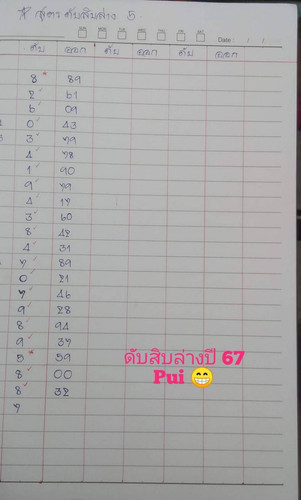 * สูตร ดับสิบล่าง 5.
Date : / /
ดับ ออก ดับ ออก ดับ ออก
8 89
2 61
6 09
0 43
3 79
4 78
1 90
9 79
4 17
3 60
8 42
4 31
7 89
0 21
7 46
9 28
8 94
9 37
5 59
8 00
8 32
7
ดับสิบล่างปี 67
Pui 😁